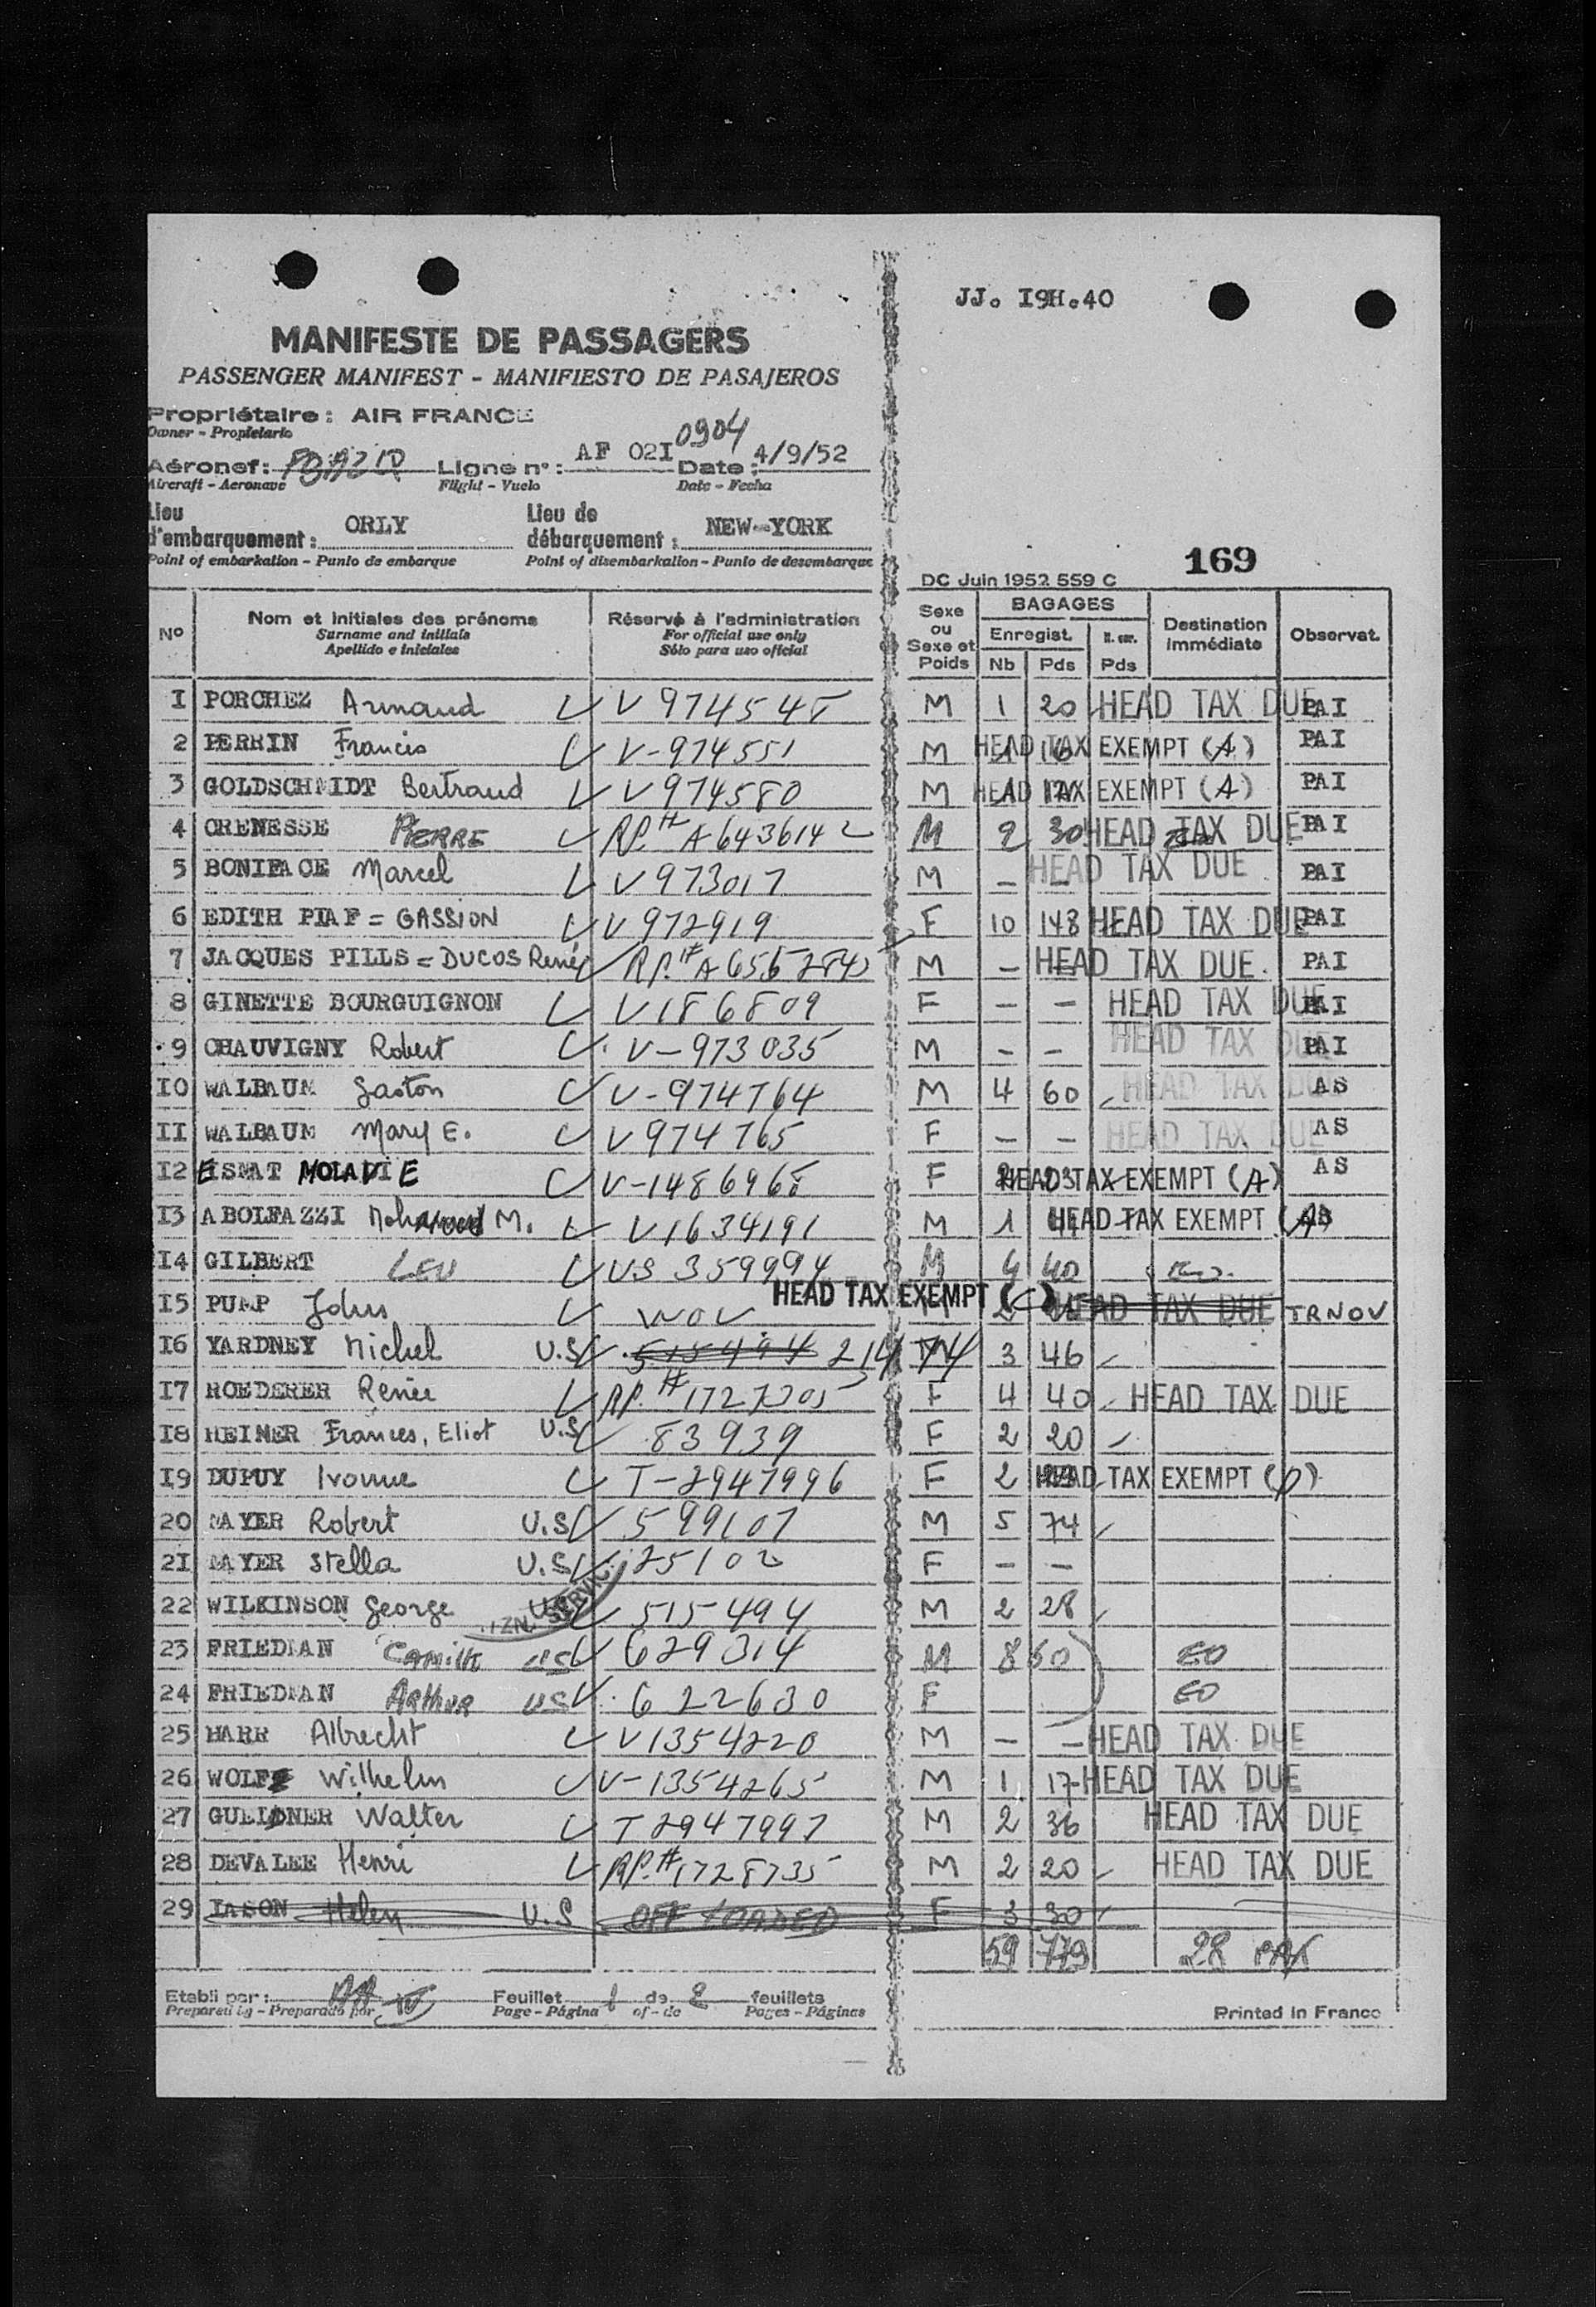 JJ. I9H.40
MANIFESTE DE PASSAGERS
PASSENGER MANIFEST - MANIFIESTO DE PASAJEROS
Propriétaire : AIR FRANCE
Owner - Propietario
0904
Aéronef : Ligne n° : AF 02I Date : 4/9/52
Aircraft - Aeronave Flight - Vuelo Date - Fecha
Lieu d'embarquement : ORLY Lieu de débarquement : NEW-YORK
Point of embarkation - Punto de embarque Point of disembarkation - Punto de desembarque
169
DC Juin 1952 559 C
N° Nom et initiales des prénoms Réservé à l'administration Sexe ou Sexe et Poids BAGAGES Destination immédiate Observat.
Surname and initials For official use only Enregist.
Apellido e iniciales Sólo para uso oficial Nb Pds Pds
I PORCHEZ Armand V 974545 M 1 20 HEAD TAX DUE PAI
2 PERRIN Francis V-974551 M 1 HEAD TAX EXEMPT (A) PAI
3 GOLDSCHMIDT Bertrand V974580 M 1 HEAD TAX EXEMPT (A) PAI
4 CRENESSE PIERRE RP.# A6436142 M 2 30 HEAD TAX DUE PAI
5 BONIFACE Marcel V 973017 M - HEAD TAX DUE PAI
6 EDITH PIAF = GASSION V 972919 F 10 148 HEAD TAX DUE PAI
7 JACQUES PILLS = DUCOS René RP.# M - HEAD TAX DUE PAI
8 GINETTE BOURGUIGNON V186809 F - - HEAD TAX DUE PAI
9 CHAUVIGNY Robert V-973035 M - - HEAD TAX DUE PAI
IO WALBAUM Gaston V-974764 M 4 60 HEAD TAX DUE AS
II WALBAUM Mary E. V974765 F - - HEAD TAX DUE AS
I2 EISMAT MOLAVIE V-1486968 F 2 HEAD TAX EXEMPT (A) AS
I3 ABOLFAZZI M. V1634191 M 1 HEAD TAX EXEMPT (A)
I4 GILBERT LEU US 359994 M 4 40
I5 PUMP John WOV HEAD TAX EXEMPT (C) 2 HEAD TAX DUE TRNOV
I6 YARDNEY Michel U.S 515494 21474 M 3 46
I7 ROEDERER Renée RP.# 1727305 F 4 40 HEAD TAX DUE
I8 HEIMER Frances, Eliot U.S 83939 F 2 20
I9 DUPUY Ivonne T-2947996 F 2 HEAD TAX EXEMPT (D)
20 MAYER Robert U.S 599107 M 5 74
2I MAYER Stella U.S 25102 F - -
22 WILKINSON George U.S 515494 M 2 28
23 FRIEDMAN Camille US 629314 M 8 60 EO
24 FRIEDMAN Arthur US 622630 F EO
25 HARR Albrecht V1354220 M - - HEAD TAX DUE
26 WOLFF Wilhelm V-1354265 M 1 17 HEAD TAX DUE
27 GUELDNER Walter T2947997 M 2 36 HEAD TAX DUE
28 DEVALEE Henri RP.# 1728735 M 2 20 HEAD TAX DUE
29 IASON Helen U.S OFF LOADED F 3 30
59 779 28 PAX
Etabli par : Feuillet 1 de 2 feuillets
Prepared by - Preparado por Page - Página of - de Pages - Páginas
Printed in France